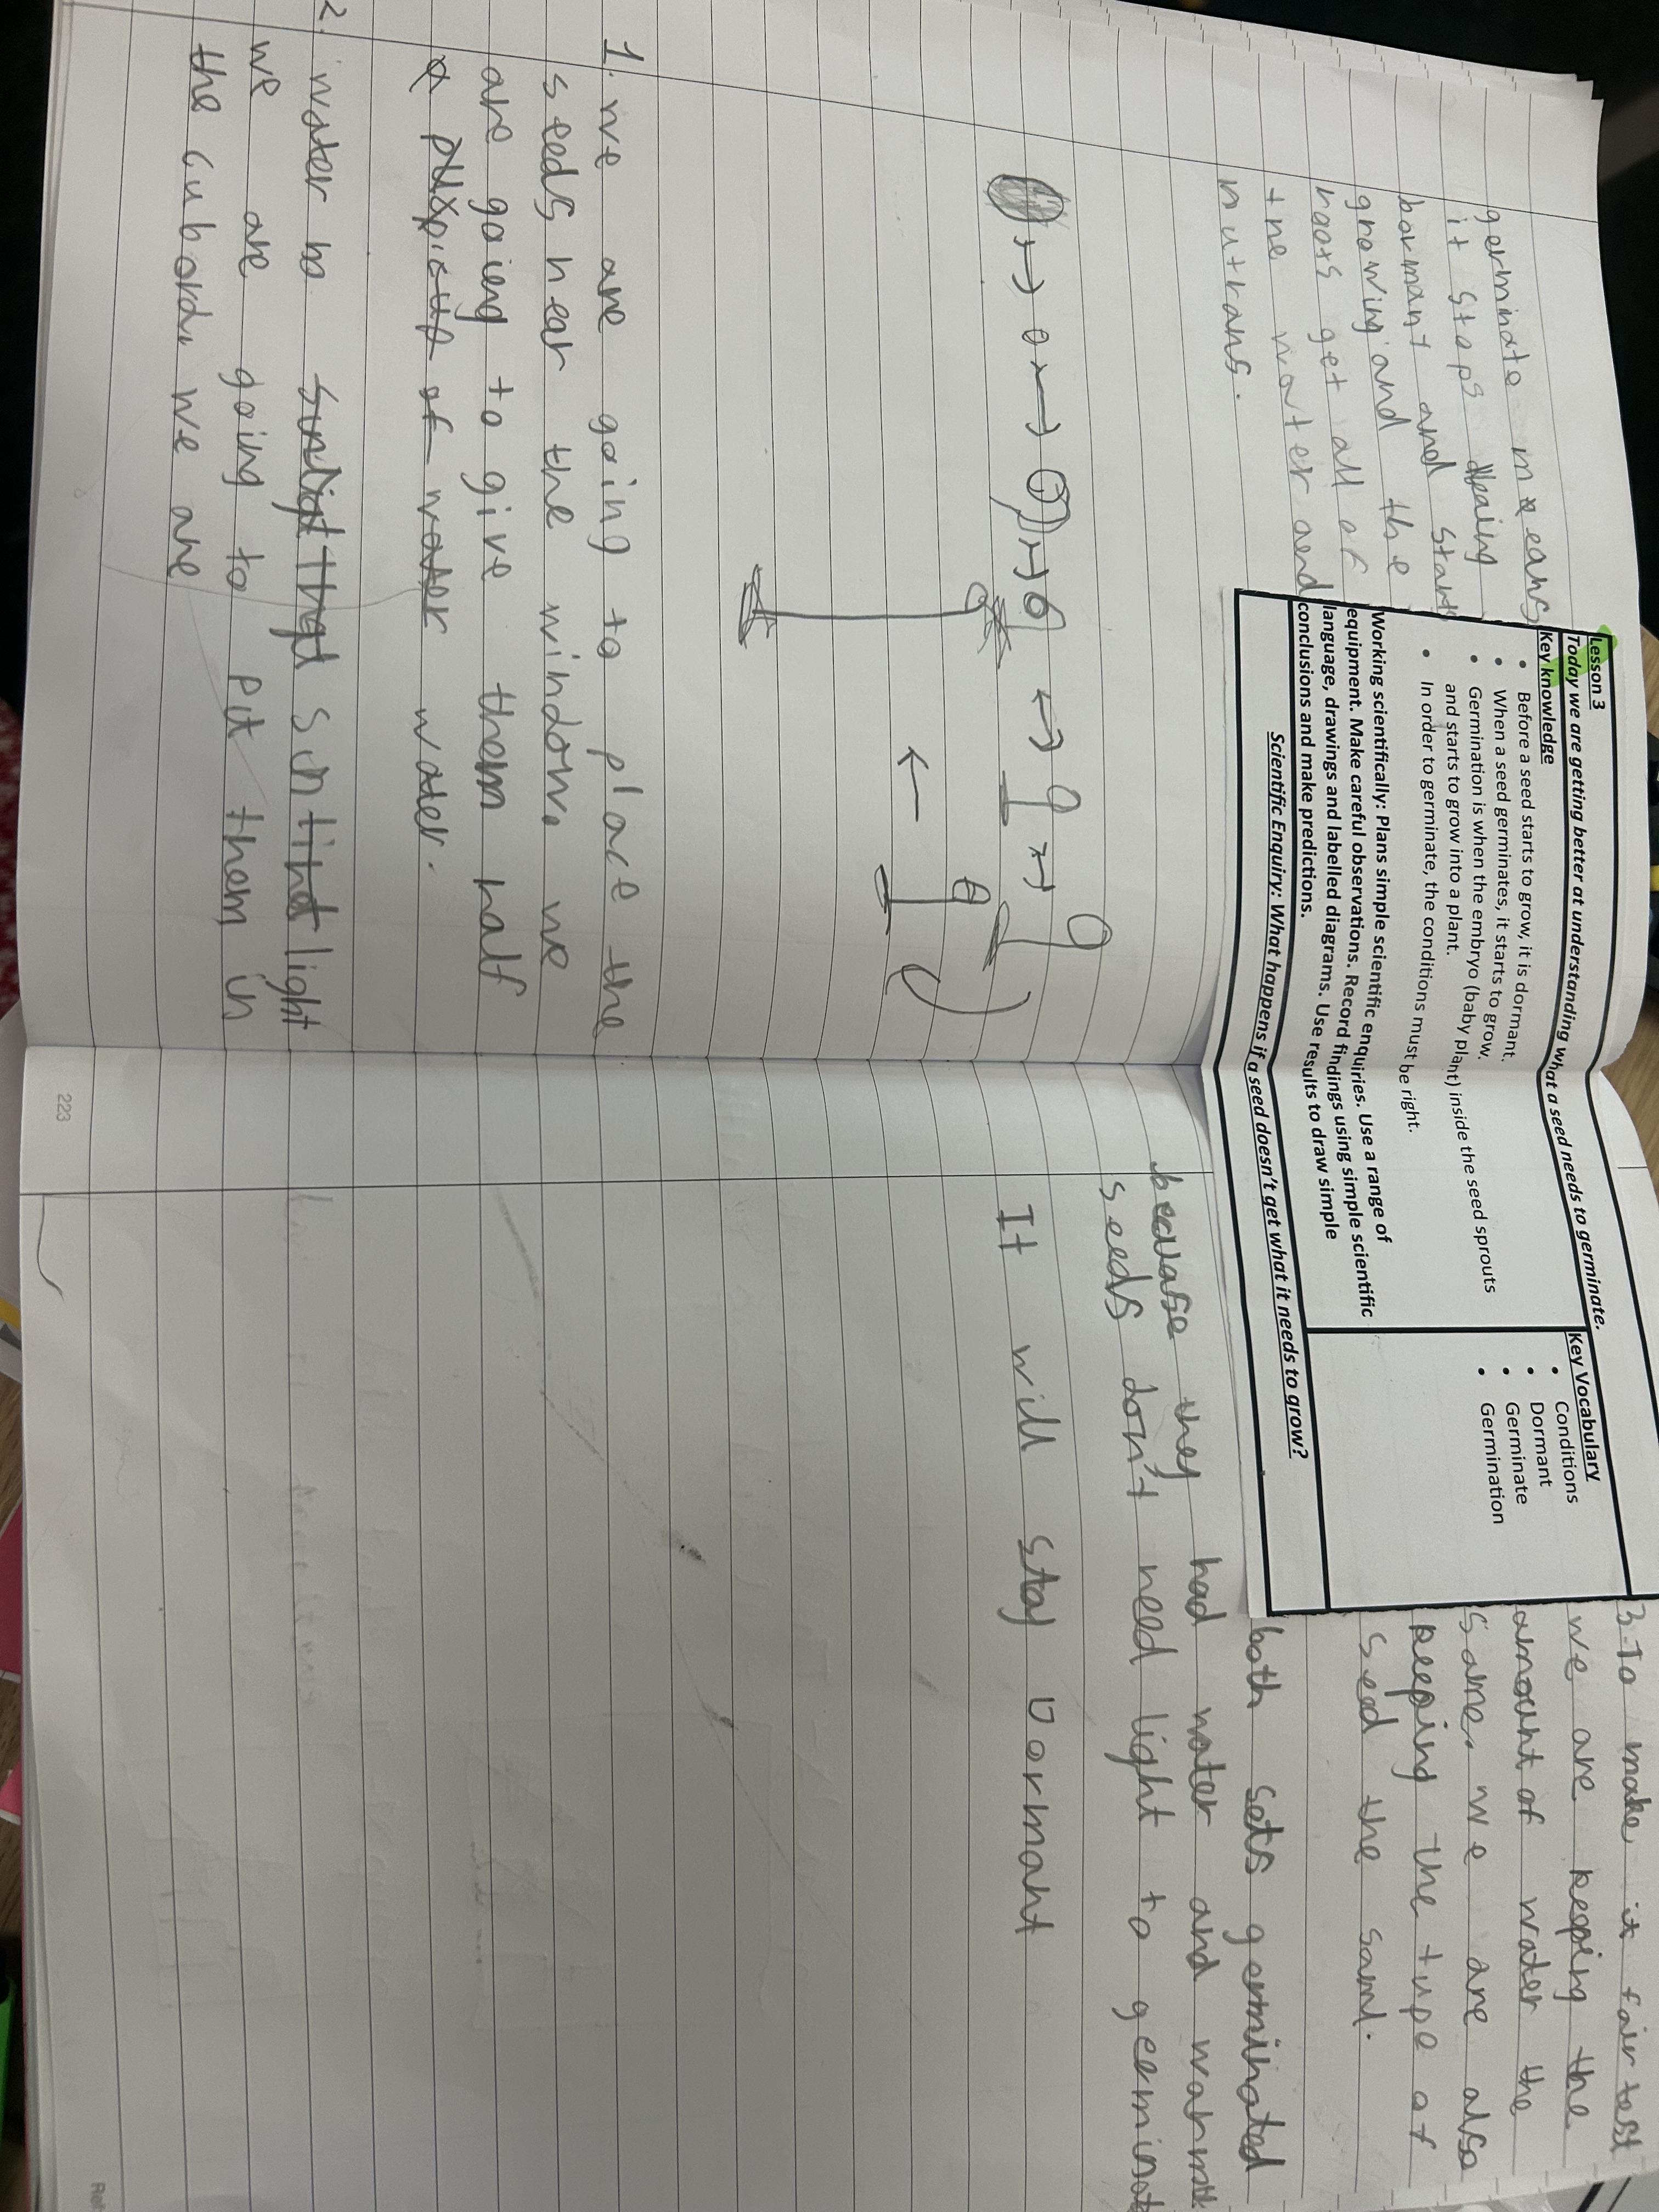 germinate means
it stops being
bormant and start
growing and the
roots get all of
the water and
nutrans.
Lesson 3
Today we are getting better at understanding what a seed needs to germinate.
Key knowledge
• Before a seed starts to grow, it is dormant.
• When a seed germinates, it starts to grow.
• Germination is when the embryo (baby plant) inside the seed sprouts
and starts to grow into a plant.
• In order to germinate, the conditions must be right.
Working scientifically: Plans simple scientific enquiries. Use a range of
equipment. Make careful observations. Record findings using simple scientific
language, drawings and labelled diagrams. Use results to draw simple
conclusions and make predictions.
Key Vocabulary
• Conditions
• Dormant
• Germinate
• Germination
Scientific Enquiry: What happens if a seed doesn't get what it needs to grow?
1. we are going to place the
seeds near the window. we
are goieng to give them half
a of water water.
2. water no sunligt thgt sun that light
we are going to pit them in
the cubord. we are
223
3. To make it fair test
we are keeping the
amount of water the
same. we are also
keeping the tupe of
seed the same.
both sets germinated
because they had water and warmth
seeds don't need light to germinate
It will stay Dormant
Ref